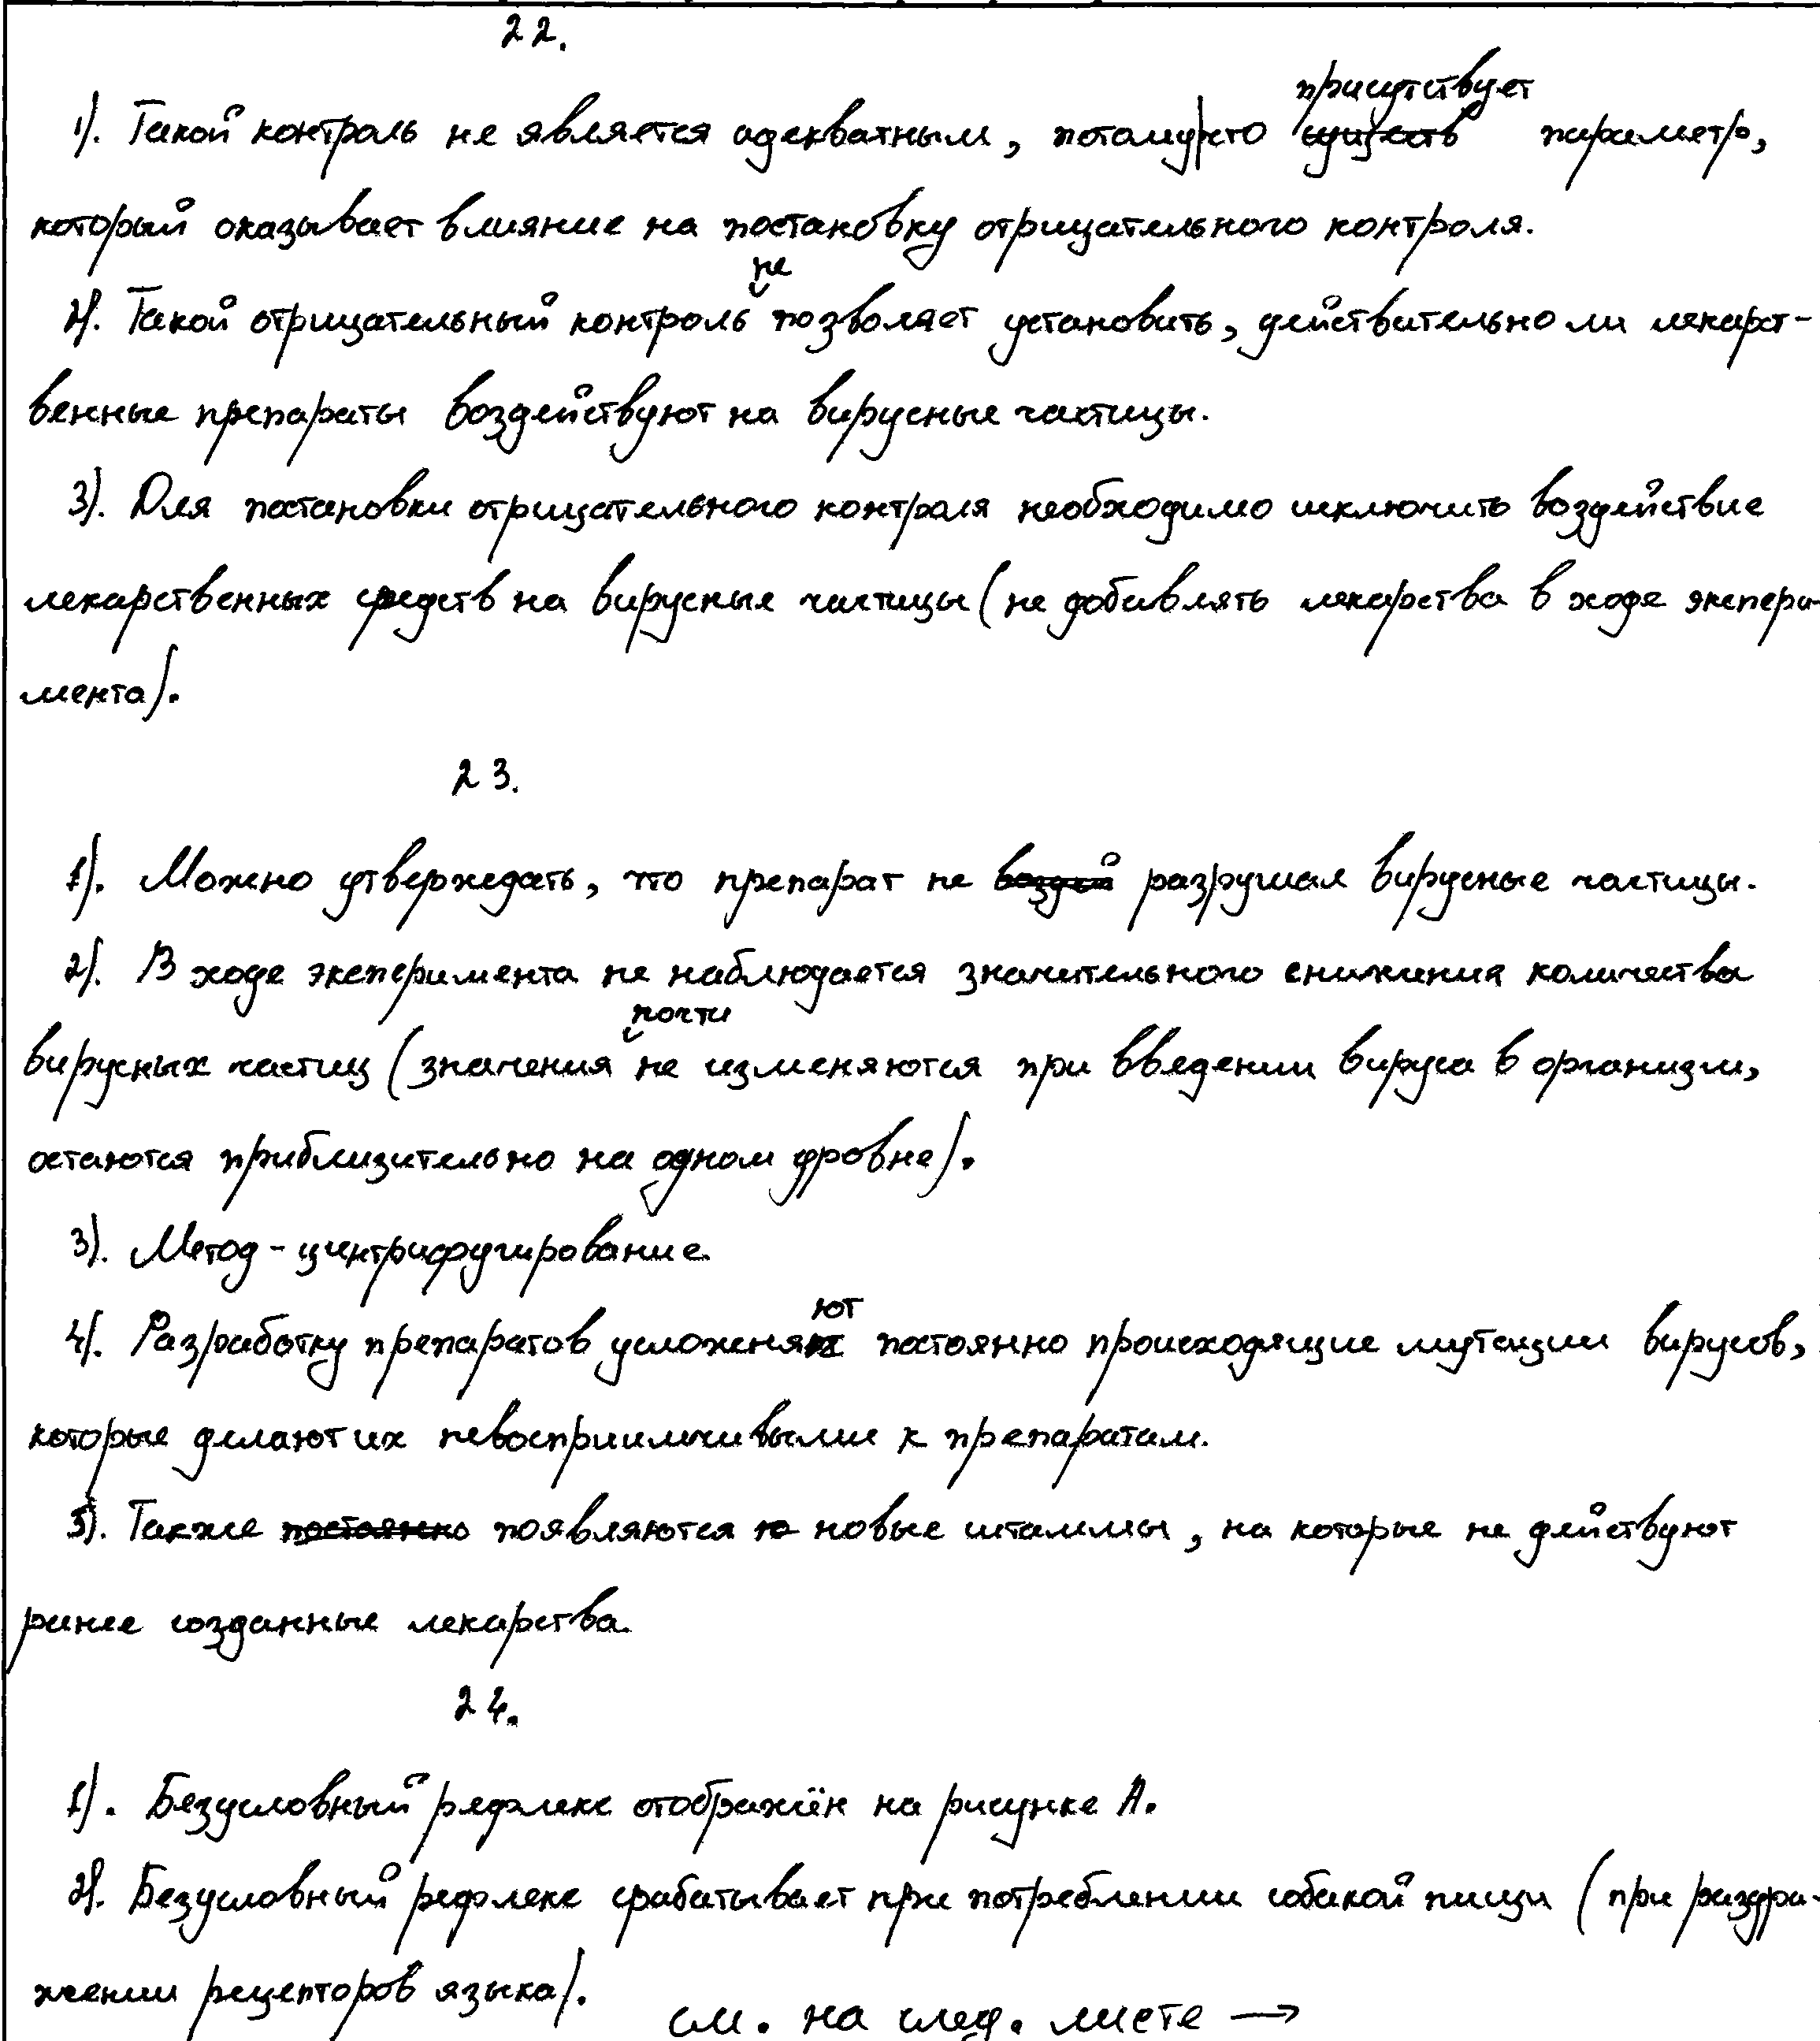 22.
1). Такой контроль не является адекватным, потому что присутствует параметр,
который оказывает влияние на постановку отрицательного контроля.
2). Такой отрицательный контроль не позволяет установить, действительно ли лекарст-
венные препараты воздействуют на вирусные частицы.
3). Для постановки отрицательного контроля необходимо исключить воздействие
лекарственных средств на вирусные частицы (не добавлять лекарства в ходе экспери-
мента).
23.
1). Можно утверждать, что препарат не разрушал вирусные частицы.
2). В ходе эксперимента не наблюдается значительного снижения количества
вирусных частиц (значения почти не изменяются при введении вируса в организм,
остаются приблизительно на одном уровне).
3). Метод - центрифугирование.
4). Разработку препаратов усложняют постоянно происходящие мутации вирусов,
которые делают их невосприимчивыми к препаратам.
5). Также появляются новые штаммы, на которые не действуют
ранее созданные лекарства.
24.
1). Безусловный рефлекс отображён на рисунке А.
2). Безусловный рефлекс срабатывает при потреблении собакой пищи (при раздра-
жении рецепторов языка).
см. на след. листе →